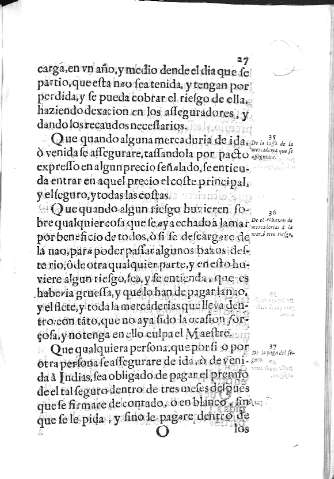 27
carga, en vn año, y medio dende el dia que se
partio, que esta nao sea tenida, y tengan por
perdida, y se pueda cobrar el riesgo de ella,
haziendo dexacion en los asseguradores, y
dando los recaudos necessarios.
Que quando alguna mercaduria de ida,
ò venida se assegurare, tassandola por pacto
expresso en algun precio señalado, se entien-
da entrar en aquel precio el coste principal,
y el seguro, y todas las costas.
Que quando algun riesgo huvieren so-
bre qualquier cosa que se aya echado à la mar
por beneficio de todos, ò si se descargare de
la nao, para poder passar algunos baxos des-
te rio, ò de otra qualquier parte, y en esto hu-
viere algun riesgo, sea, y se entienda, que es
haberia gruessa, y que lo han de pagar la nao,
y el flete, y toda la mercaderias que lleva den-
tro, con tãto, que no aya sido la ocasion for-
çosa, y no tenga en ello culpa el Maestre.
Que qualquiera persona, que por si o por
otra persona se assegurare de ida, ò de veni-
da à Indias, sea obligado de pagar el premio
de el tal seguro dentro de tres meses despues
que se firmare de contado, o en blanco, sin
que se le pida, y sino le pagare dentro de
O
los
35
De la tassa de la
mercaderia que se
36
mercaderias à la
37
De la paga del se-